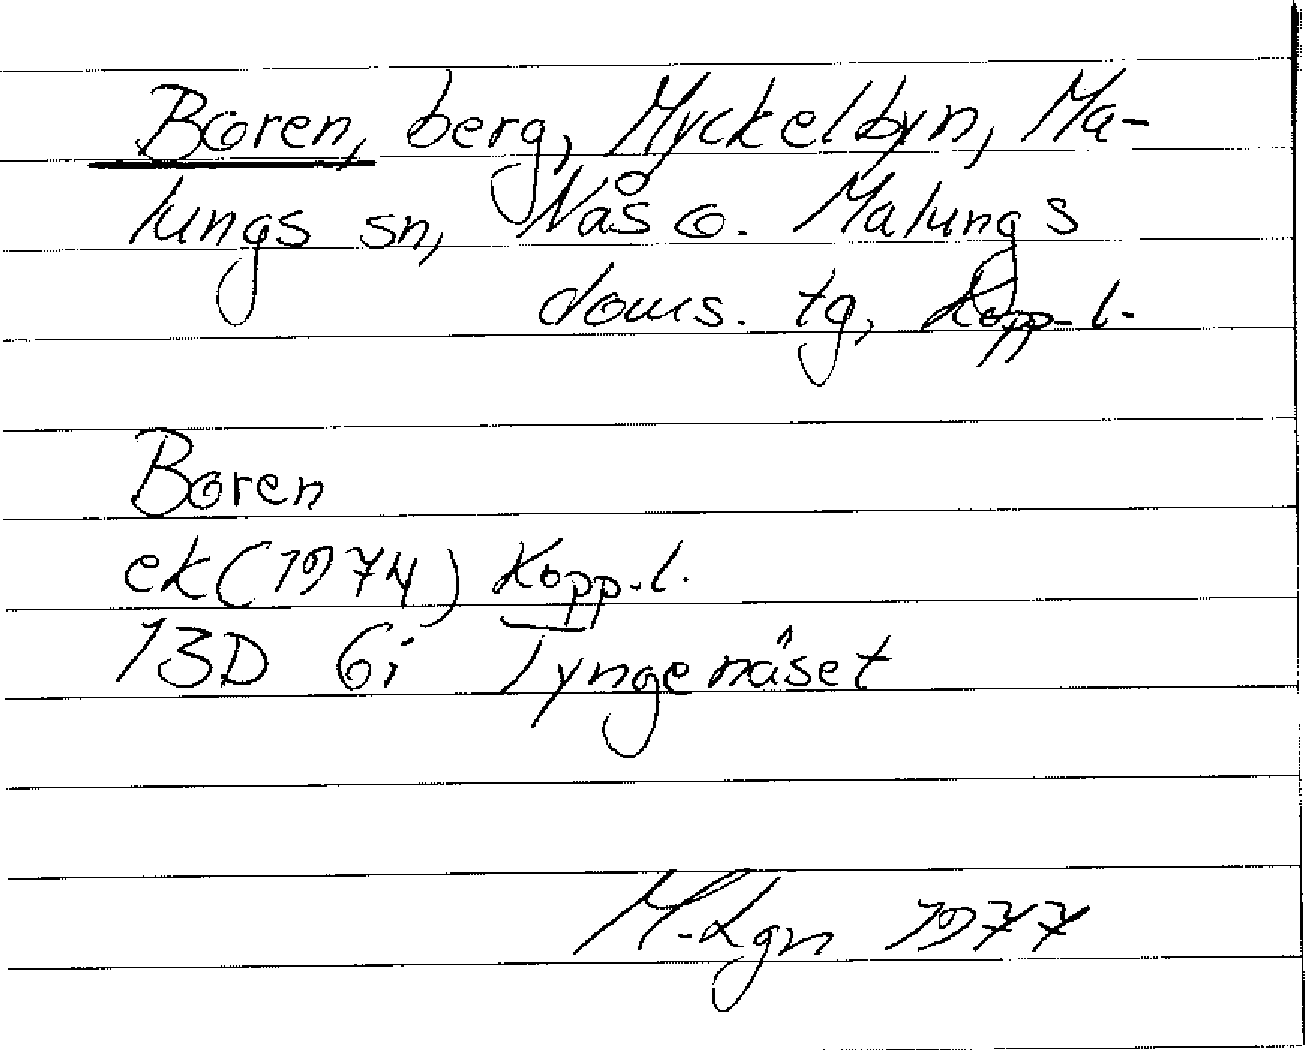 Boren, berg, Myckelbyn, Ma-
lungs sn, Nås o. Malungs
doms. tg, Kopp. l.
Boren
ek (1974) Kopp. l.
13D 6i Tyngenäset
M. Lgn 1977